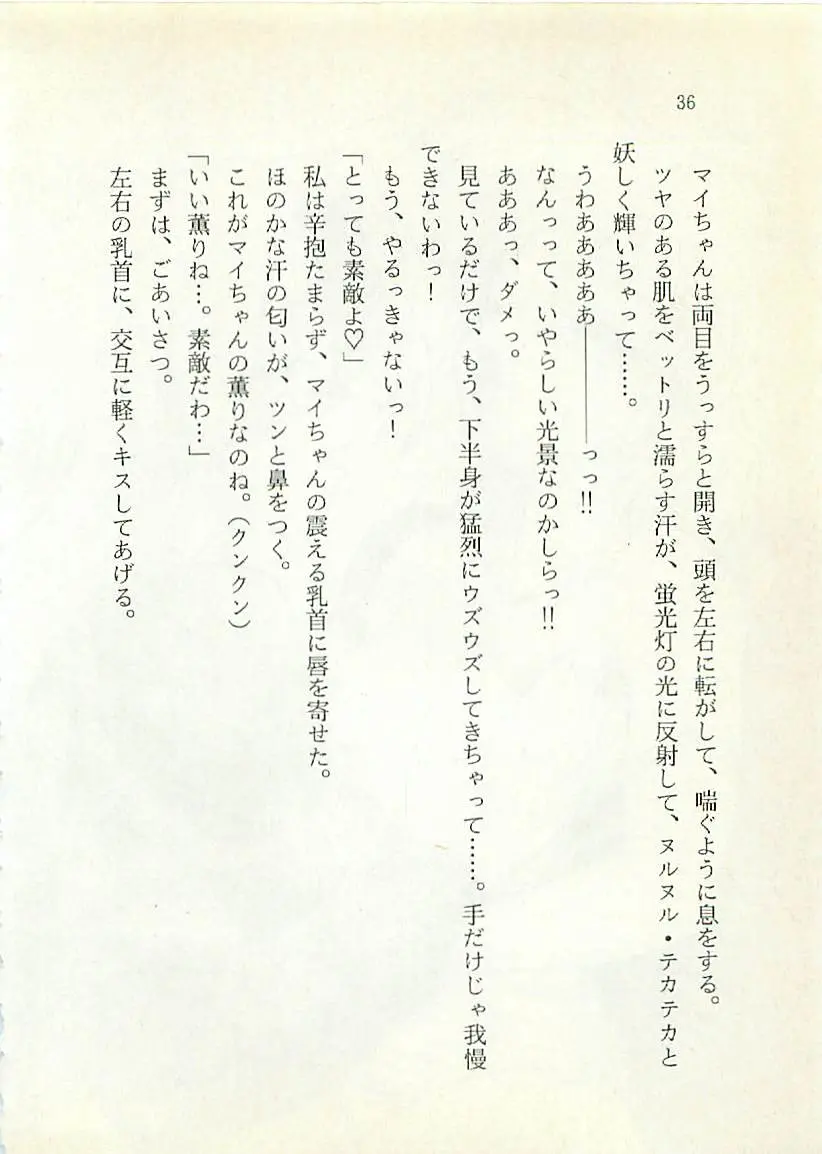 36
マイちゃんは両目をうっすらと開き、頭を左右に転がして、喘ぐように息をする。
ツヤのある肌をベットリと濡らす汗が、蛍光灯の光に反射して、ヌルヌル・テカテカと
妖しく輝いちゃって……。
うわあああああ————っっ!!
なんっって、いやらしい光景なのかしらっ!!
あああっ、ダメっ。
見ているだけで、もう、下半身が猛烈にウズウズしてきちゃって……。手だけじゃ我慢
できないわっ！
もう、やるっきゃないっ！
「とっても素敵よ♡」
私は辛抱たまらず、マイちゃんの震える乳首に唇を寄せた。
ほのかな汗の匂いが、ツンと鼻をつく。
これがマイちゃんの薫りなのね。（クンクン）
「いい薫りね…。素敵だわ…」
まずは、ごあいさつ。
左右の乳首に、交互に軽くキスしてあげる。